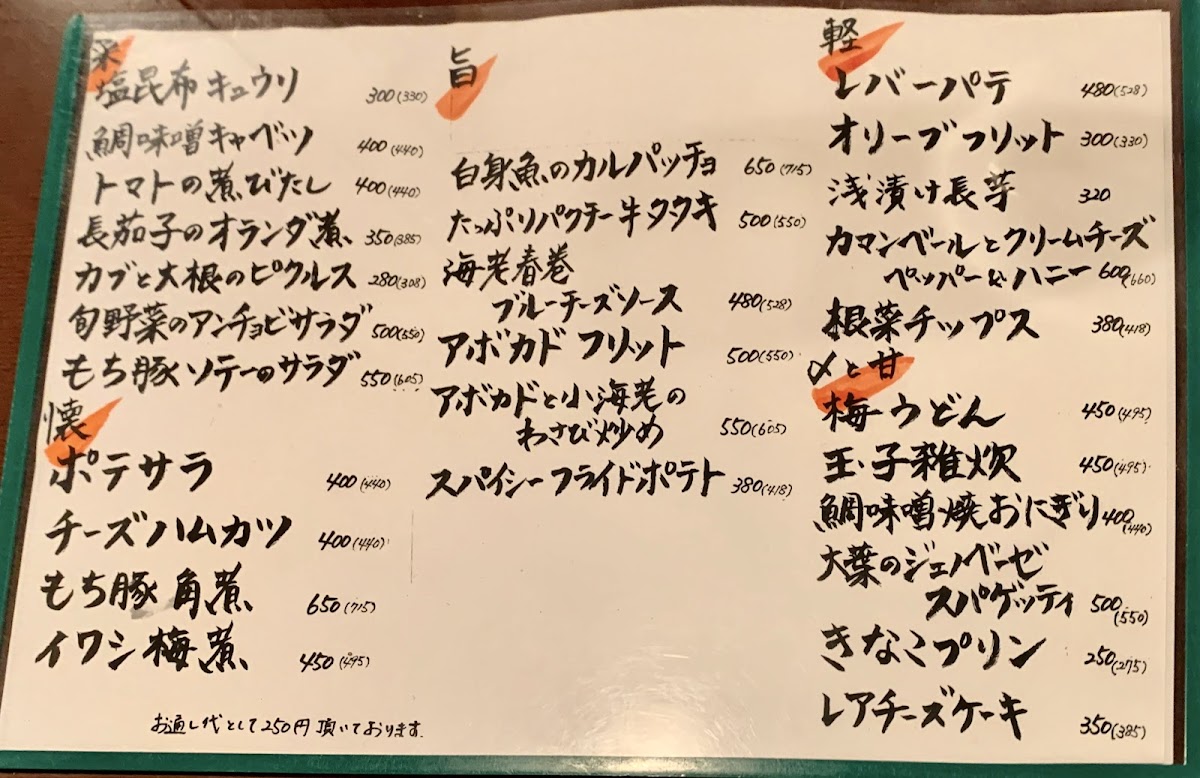 菜
塩昆布キュウリ 300(330)
鯛味噌キャベツ 400(440)
トマトの煮びたし 400(440)
長茄子のオランダ煮 350(385)
カブと大根のピクルス 280(308)
旬野菜のアンチョビサラダ 500(550)
もち豚ソテーのサラダ 550(605)
懐
ポテサラ 400(440)
チーズハムカツ 400(440)
もち豚角煮 650(715)
イワシ梅煮 450(495)
お通し代として250円頂いております。
旨
白身魚のカルパッチョ 650(715)
たっぷりパクチー牛タタキ 500(550)
海老春巻
ブルーチーズソース 480(528)
アボカドフリット 500(550)
アボカドと小海老の
わさび炒め 550(605)
スパイシーフライドポテト 380(418)
軽
レバーパテ 480(528)
オリーブフリット 300(330)
浅漬け長芋 320
カマンベールとクリームチーズ
ペッパー&ハニー 600(660)
根菜チップス 380(418)
〆と甘
梅うどん 450(495)
玉子雑炊 450(495)
鯛味噌焼おにぎり 400(440)
大葉のジェノベーゼ
スパゲッティ 500(550)
きなこプリン 250(275)
レアチーズケーキ 350(385)